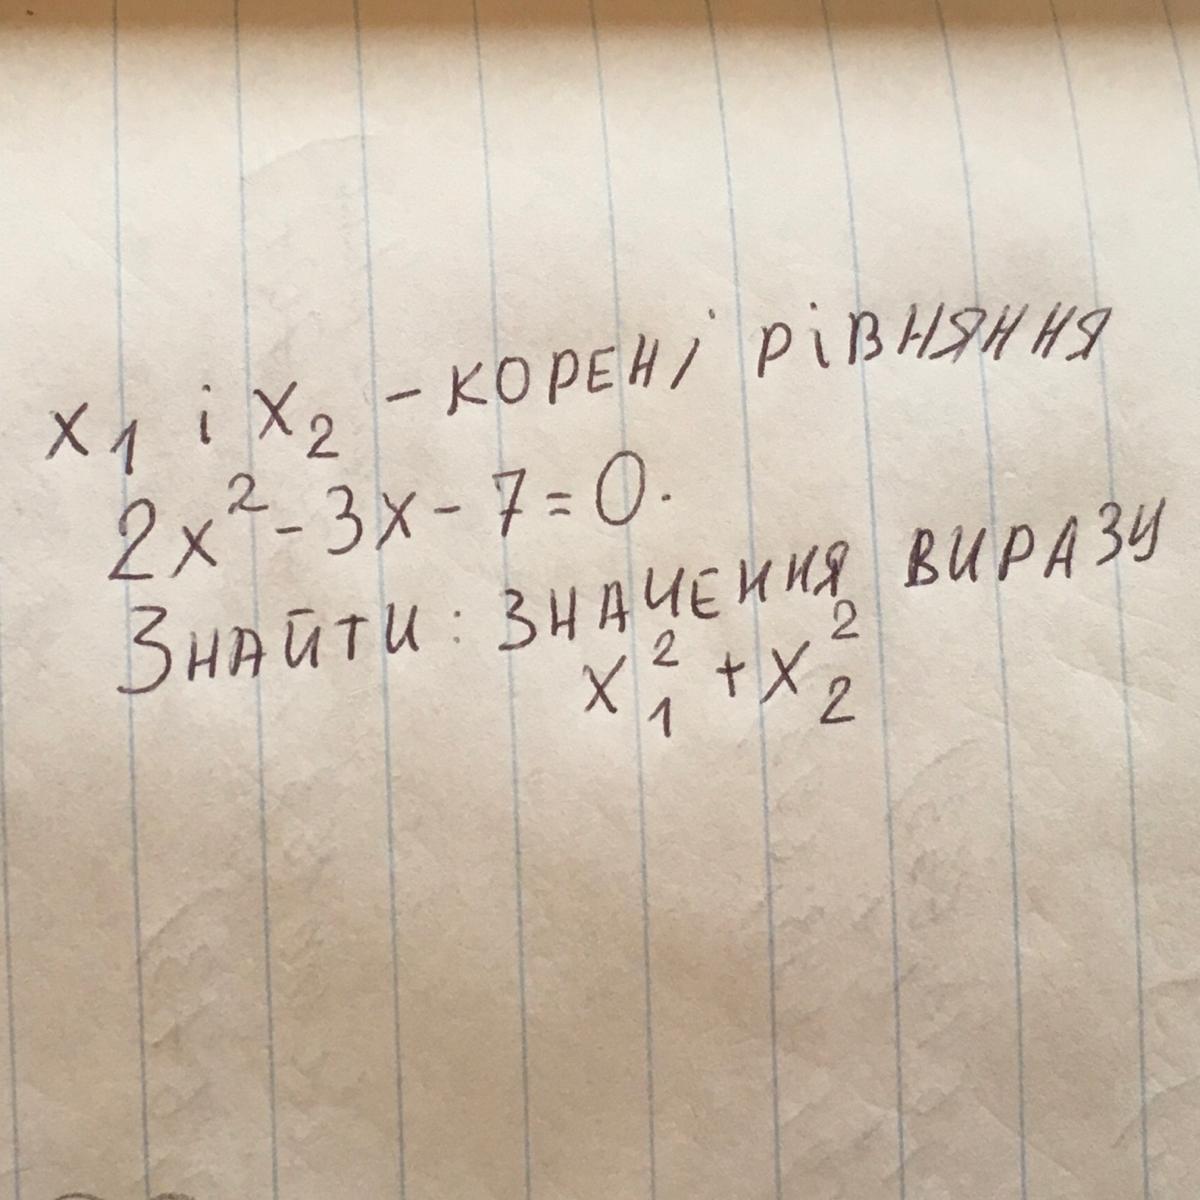 x₁ і x₂ - КОРЕНІ РІВНЯННЯ
2x² - 3x - 7 = 0.
ЗНАЙТИ: ЗНАЧЕННЯ ВИРАЗУ
x₁² + x₂²